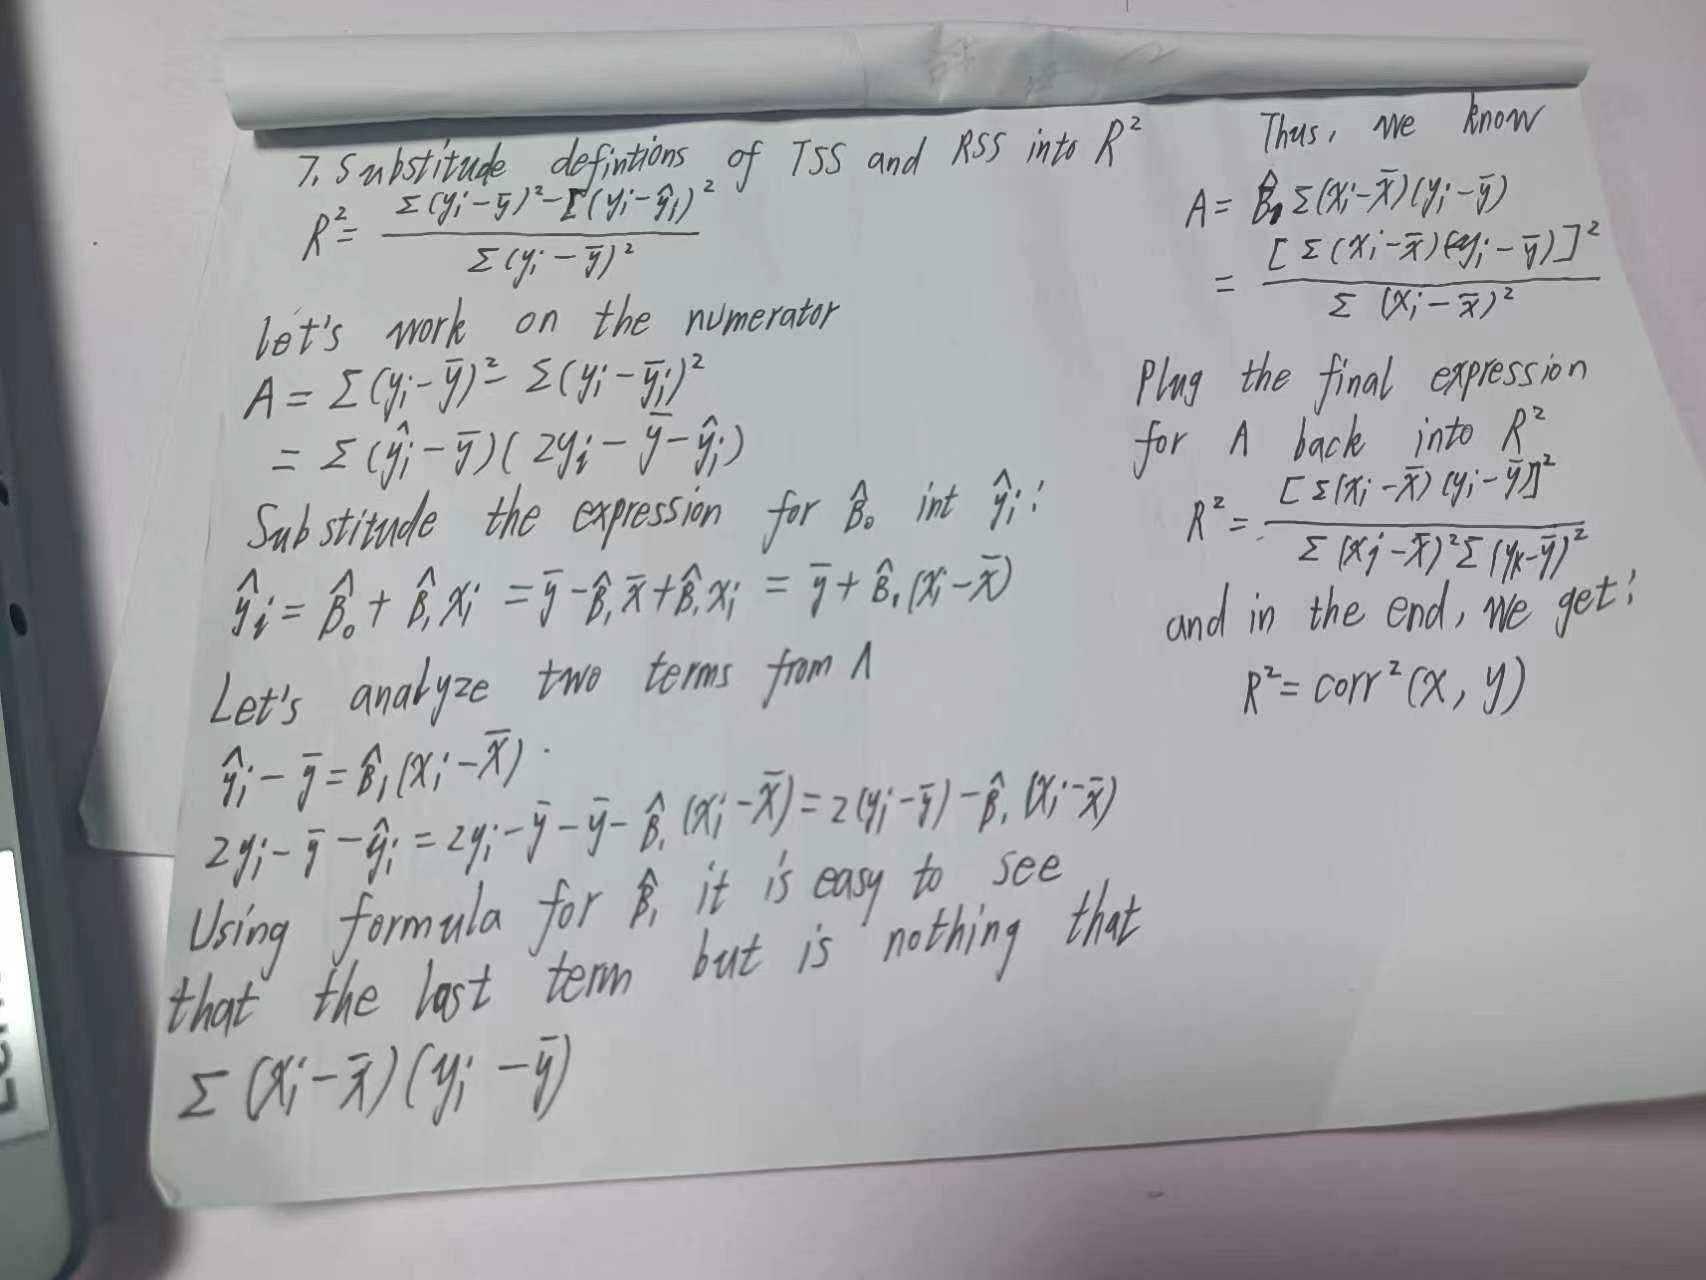 7. Substitude defintions of TSS and RSS into R²
R² = (Σ(yᵢ-ȳ)² - Σ(yᵢ-ŷᵢ)²) / (Σ(yᵢ-ȳ)²)
Let's work on the numerator
A = Σ(yᵢ-ȳ)² - Σ(yᵢ-ȳᵢ)²
= Σ(ŷᵢ-ȳ)(2yᵢ-ȳ-ŷᵢ)
Substitude the expression for B̂₀ int ŷᵢ:
ŷᵢ = B̂₀ + B̂₁xᵢ = ȳ - B̂₁x̄ + B̂₁xᵢ = ȳ + B̂₁(xᵢ-x̄)
Let's analyze two terms from A
ŷᵢ - ȳ = B̂₁(xᵢ-x̄).
2yᵢ - ȳ - ŷᵢ = 2yᵢ - ȳ - ȳ - B̂₁(xᵢ-x̄) = 2(yᵢ-ȳ) - B̂₁(xᵢ-x̄)
Using formula for B̂₁ it is easy to see
that the last term but is nothing that
Σ(xᵢ-x̄)(yᵢ-ȳ)
Thus, we know
A = B̂₁Σ(xᵢ-x̄)(yᵢ-ȳ)
= [Σ(xᵢ-x̄)(yᵢ-ȳ)]² / Σ(xᵢ-x̄)²
Plug the final expression
for A back into R²
R² = [Σ(xᵢ-x̄)(yᵢ-ȳ)]² / Σ(xⱼ-x̄)²Σ(yₖ-ȳ)²
and in the end, we get:
R² = corr²(x, y)